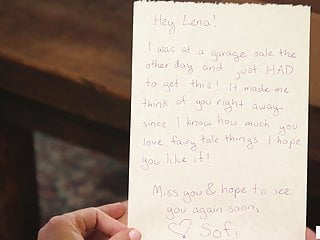 Hey Lena!
I was at a garage sale the
other day and just HAD
to get this! It made me
think of you right away
since I know how much you
love fairy tale things I hope
you like it!
Miss you & hope to see
you again soon,
♡ Sofi